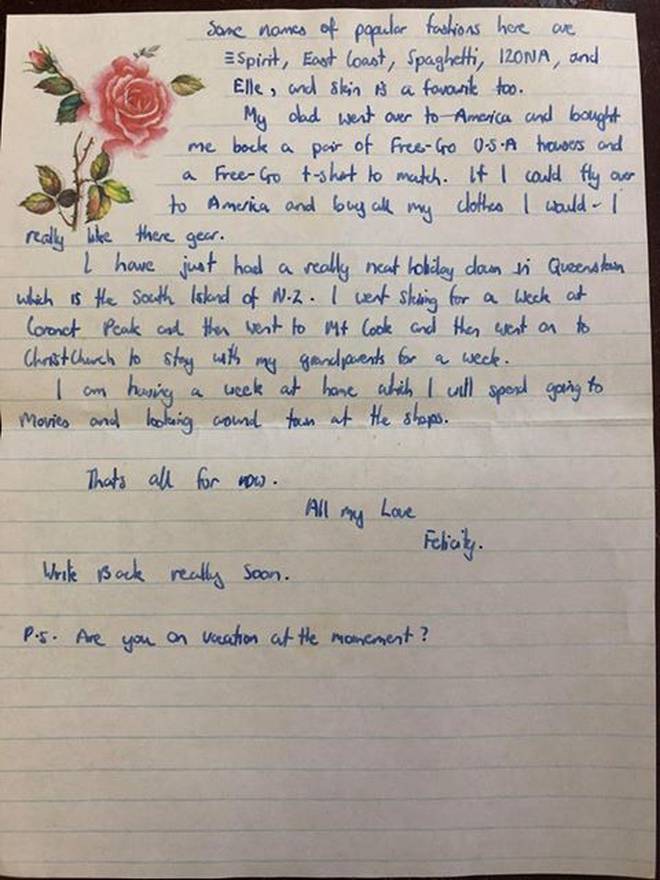 Some names of popular fashions here are
Espirit, East Coast, Spaghetti, IZONA, and
Elle, and skin is a favourite too.
My dad went over to America and bought
me back a pair of Free-Go U.S.A trousers and
a Free-Go t-shirt to match. If I could fly over
to America and buy all my clothes I would - I
really like there gear.
I have just had a really neat holiday down in Queenstown
which is the South Island of N.Z. I went skiing for a week at
Coronet Peak and then went to Mt Cook and then went on to
ChristChurch to stay with my grandparents for a week.
I am having a week at home which I will spend going to
Movies and looking around town at the shops.
Thats all for now.
All my Love
Felicity.
Write Back really Soon.
P.S. Are you on vacation at the momement?